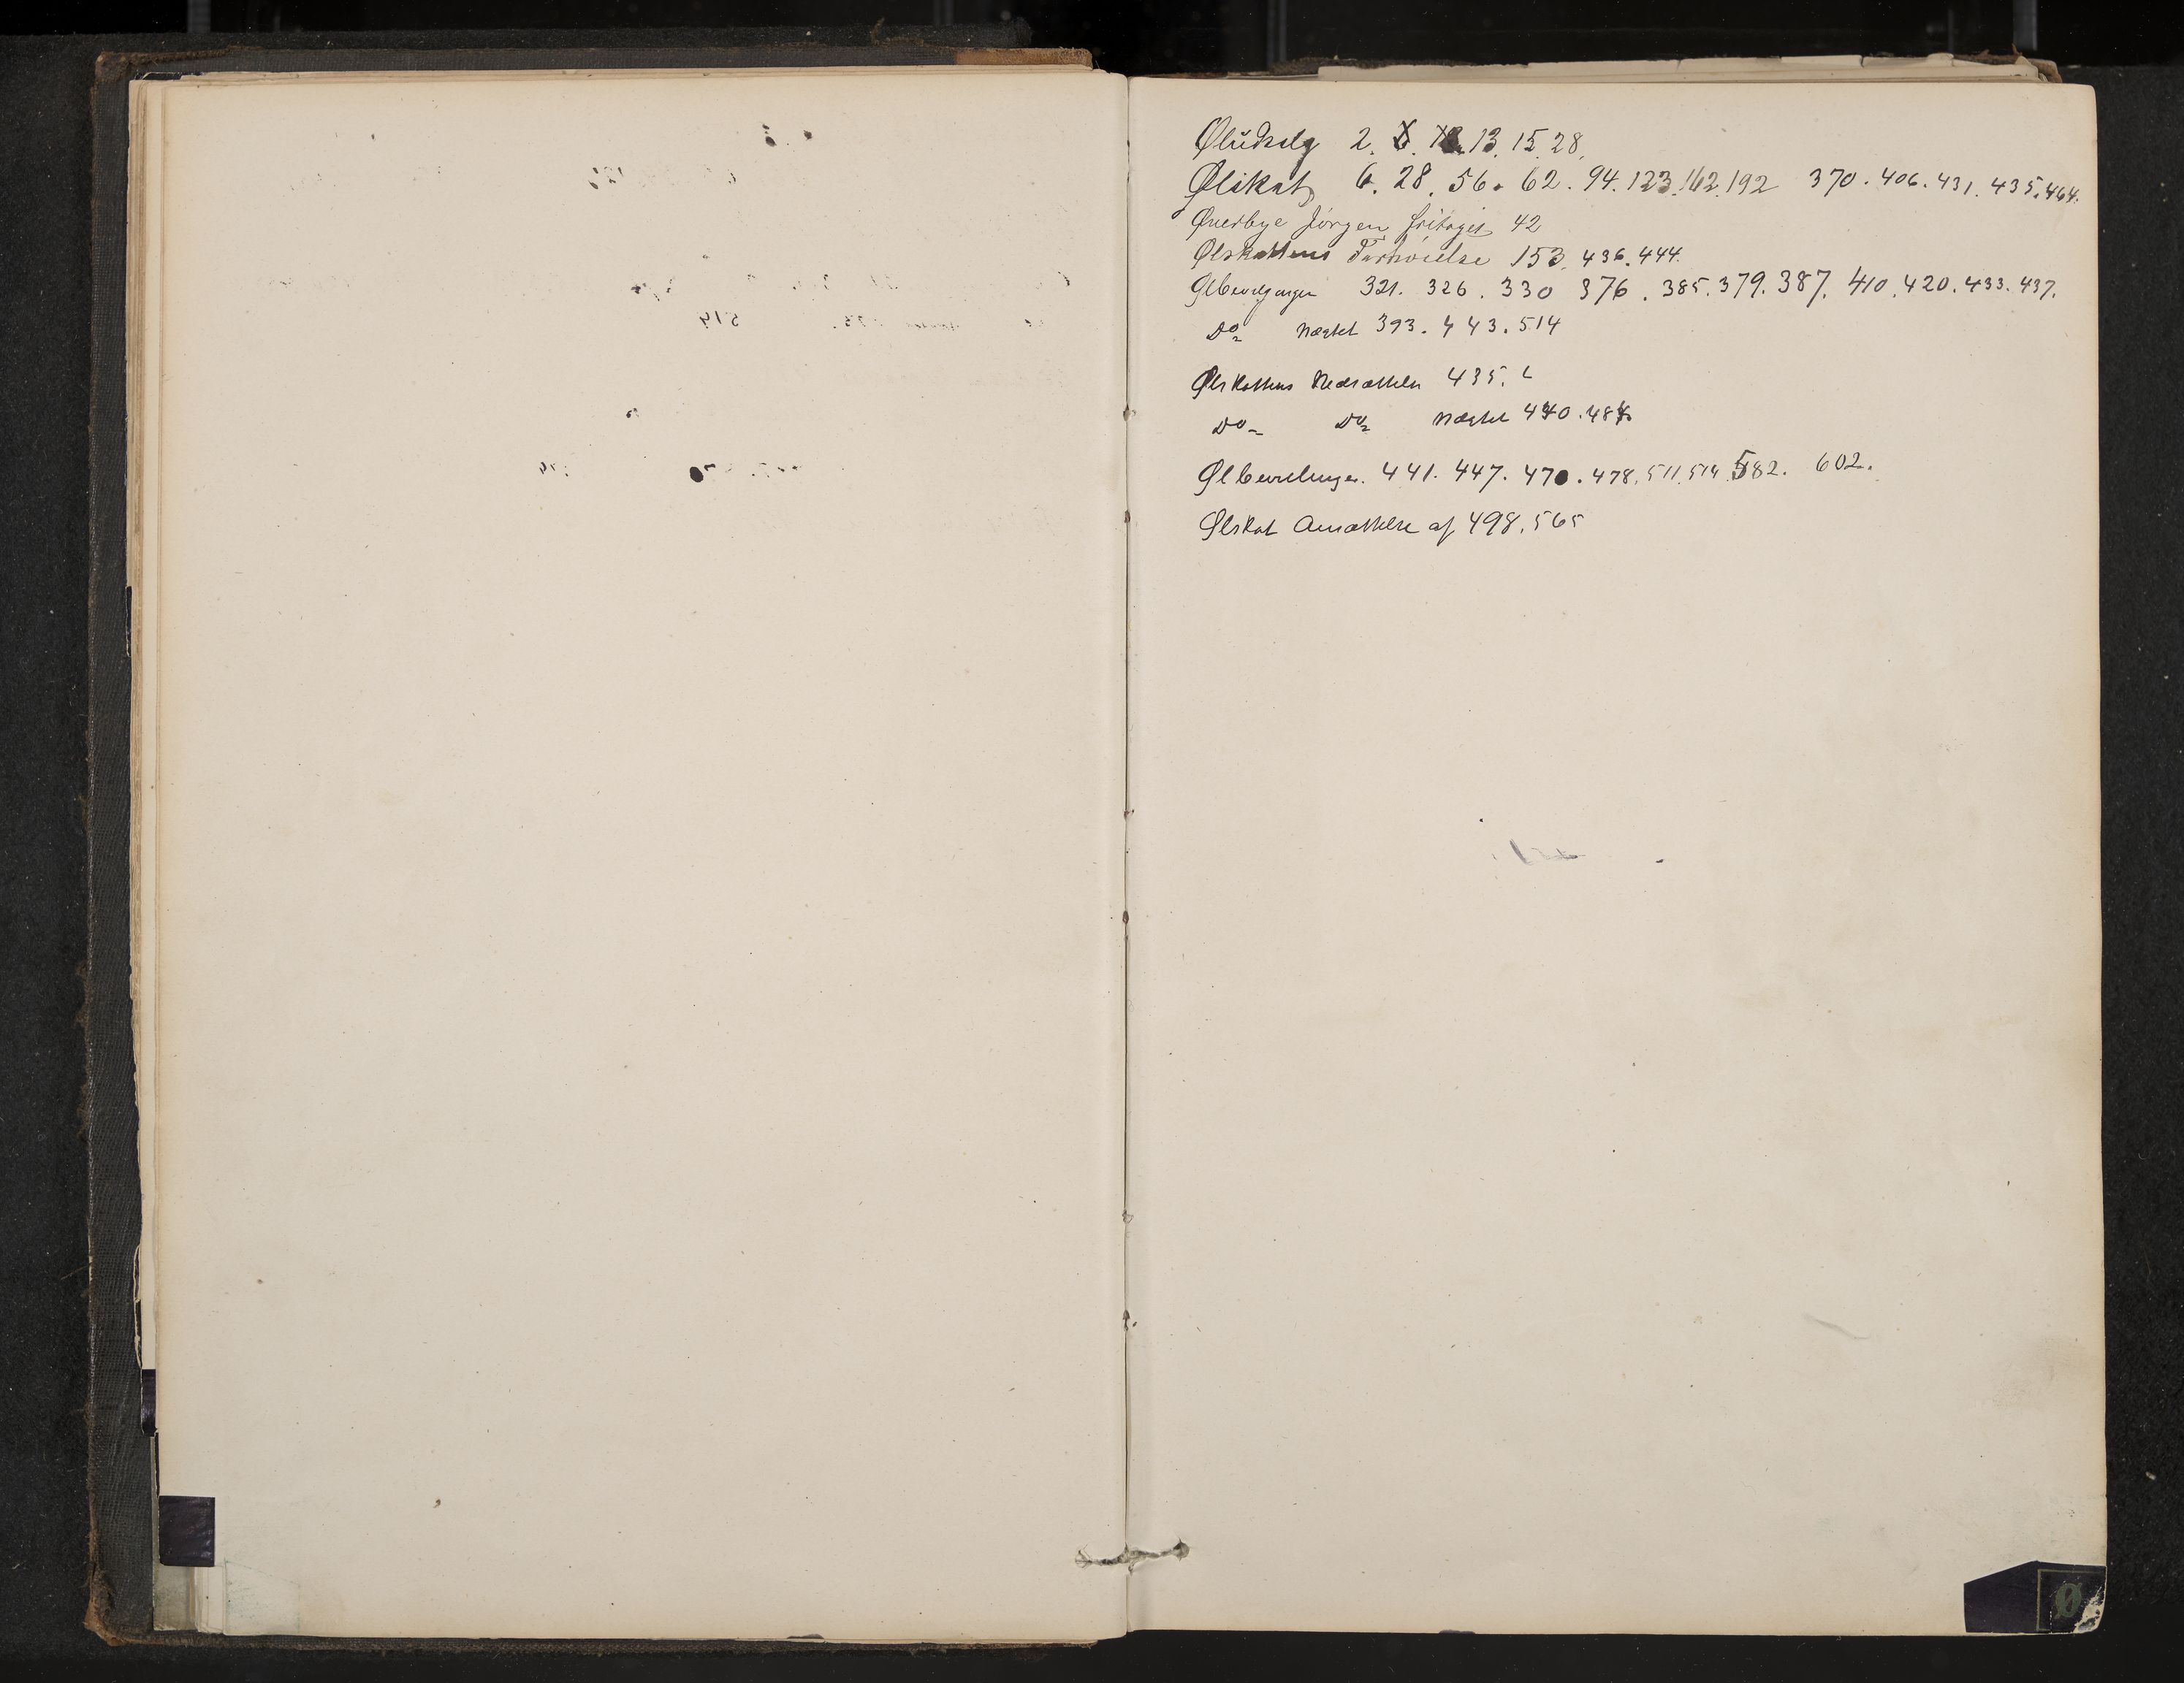 Øludsalg 2. 6. 13. 15. 28.
Ølskat 6. 28. 56. 62. 94. 123. 162. 192 370. 406. 431. 435. 464.
Øverbye Jörgen fritages 42
Ølskattens Forhöielse 153. 436. 444.
Ølbevilgninger 321. 326. 330 376. 385. 379. 387. 410. 420. 433. 437.
Do Nægtet 393. 443. 514
Ølskattens Nedsættelse 435.
Do Do Nægtet 440. 484
Ølbevilinger. 441. 447. 470. 478. 511. 514. 582. 602.
Ølskat Ansættelse af 498. 565
Ø